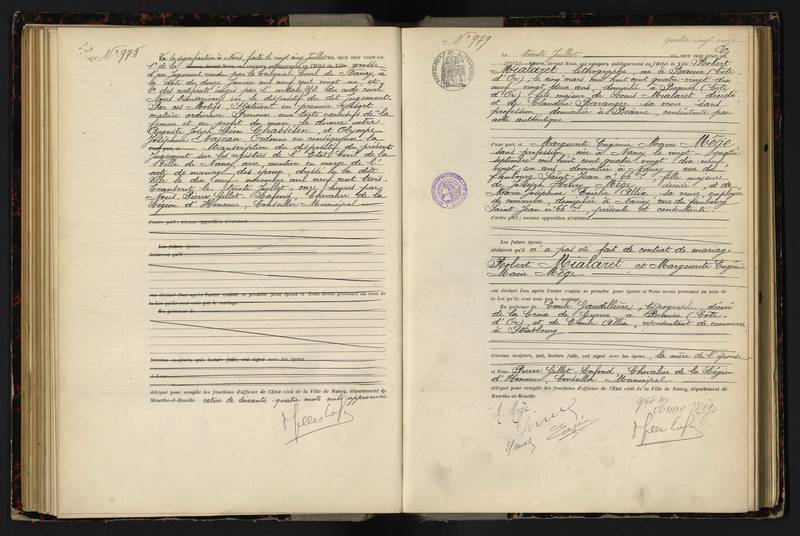 N° 978
Vu la signification à Nous faite le vingt cinq juillet MIL NEUF CENT VINGT-UN,
1° de la grosse
d'un jugement rendu par le tribunal Civil de Nancy, à
la date du douze janvier mil neuf cent vingt un, et
2° des certificats exigés par l'article 252 du code civil
Nous transcrivons ici le dispositif du dit jugement
Par ces Motifs, Statuant en premier ressort
matière ordinaire Prononce aux torts exclusifs de la
femme et au profit du mari, le divorce entre
Auguste Joseph Léon Chrasselin, et Olympe
Joséphine Ordonne en conséquence la
transcription du dispositif du présent
jugement sur les registres de l'Etat Civil de la
Ville de Nancy et mention en marge de l'
acte de mariage des époux, dressé à la dite
Ville le dix neuf novembre mil neuf cent trois.
Transcrit le trente juillet, onze heures par
Nous, Pierre Gillet-Lafond, Chevalier de la
Légion d'Honneur, Conseiller Municipal
d'autre part; aucune opposition n'existant
Les futurs époux
déclarent qu'il
ont déclaré l'un après l'autre vouloir se prendre pour époux et Nous avons prononcé au nom de
la Loi qu'ils sont unis par le mariage.
En présence de
témoins majeurs, qui, lecture faite, ont signé avec les époux
et Nous
délégué pour remplir les fonctions d'officier de l'Etat civil de la Ville de Nancy, département de
Meurthe-et-Moselle. rature de soixante quatre mots nuls approuvée
N° 979
quatre vingt onze
Le trente juillet MIL NEUF CENT VINGT-UN
heures, devant Nous, ont comparu publiquement en l'Hôtel de Ville Robert
Mialaret lithographe, né à Beaune (Côte
d'Or), le cinq mars mil huit cent quatre vingt dix
neuf, vingt deux ans, domicilié à Beaune (Côte
d'Or), fils majeur de Louis Mialaret décédé
et de Claudine Baranger sa veuve sans
profession, domiciliée à Beaune, consentante par
acte authentique
d'une part, et Marguerite Eugénie Marie Mège
sans profession, née à Nancy le vingt quatre
septembre mil huit cent quatre vingt dix neuf
vingt un ans, domiciliée à Nancy, rue du
Faubourg Saint Jean n° 66, fille majeure
de Joseph Henry Mège décédé, et de
Marie Joséphine Emilie Allia sa veuve, employée
de commerce, domiciliée à Nancy rue du faubourg
Saint Jean n° 66, présente et consentante
d'autre part; aucune opposition n'existant
Les futurs époux
déclarent qu'il n'a pas été fait de contrat de mariage
Robert Mialaret et Marguerite Eugénie
Marie Mège
ont déclaré l'un après l'autre vouloir se prendre pour époux et Nous avons prononcé au nom de
la Loi qu'ils sont unis par le mariage.
En présence de Emile Gaudillière, typographe, décoré
de la Croix de Guerre, à Beaune (Côte-
d'Or) et de Emile Allia, représentant de commerce
à Strasbourg
témoins majeurs, qui, lecture faite, ont signé avec les époux, la mère de l'épouse
et Nous Pierre Gillet-Lafond Chevalier de la Légion
d'Honneur, Conseiller Municipal
délégué pour remplir les fonctions d'officier de l'Etat civil de la Ville de Nancy, département de
Meurthe-et-Moselle.
M. Mège